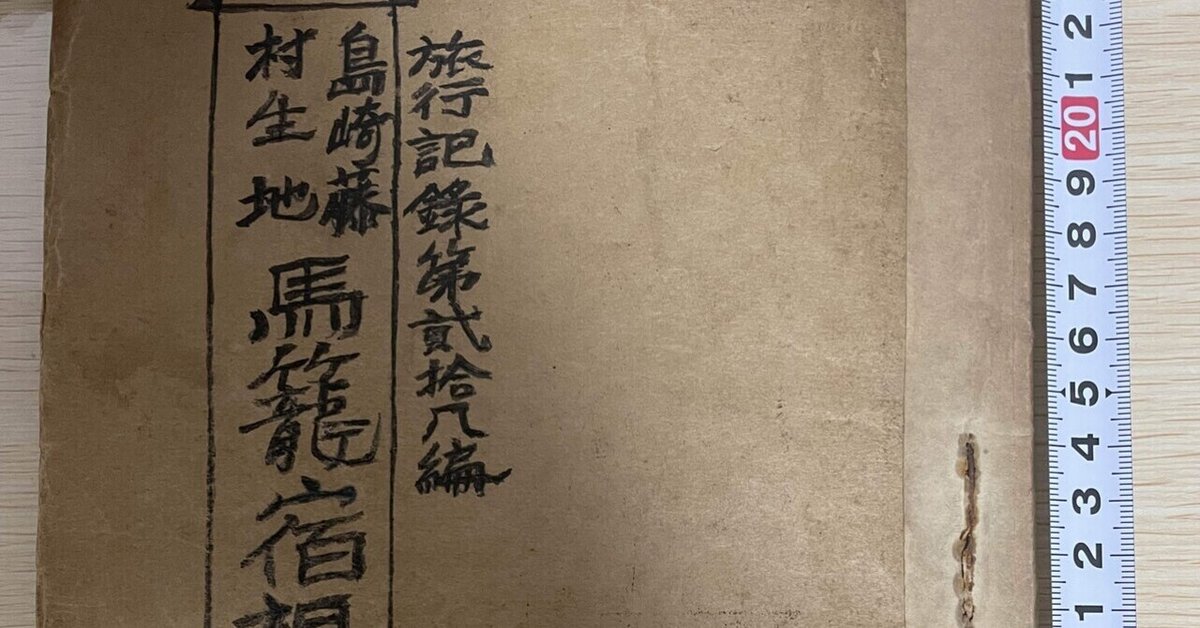 旅行記錄第貳拾八編
島崎藤
村生地
馬籠宿
2
1
20
9
8
7
6
5
4
3
2
1